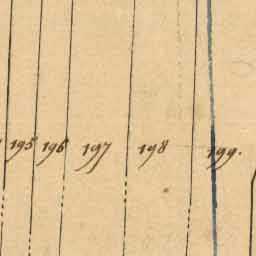 195 196 197 198 199.